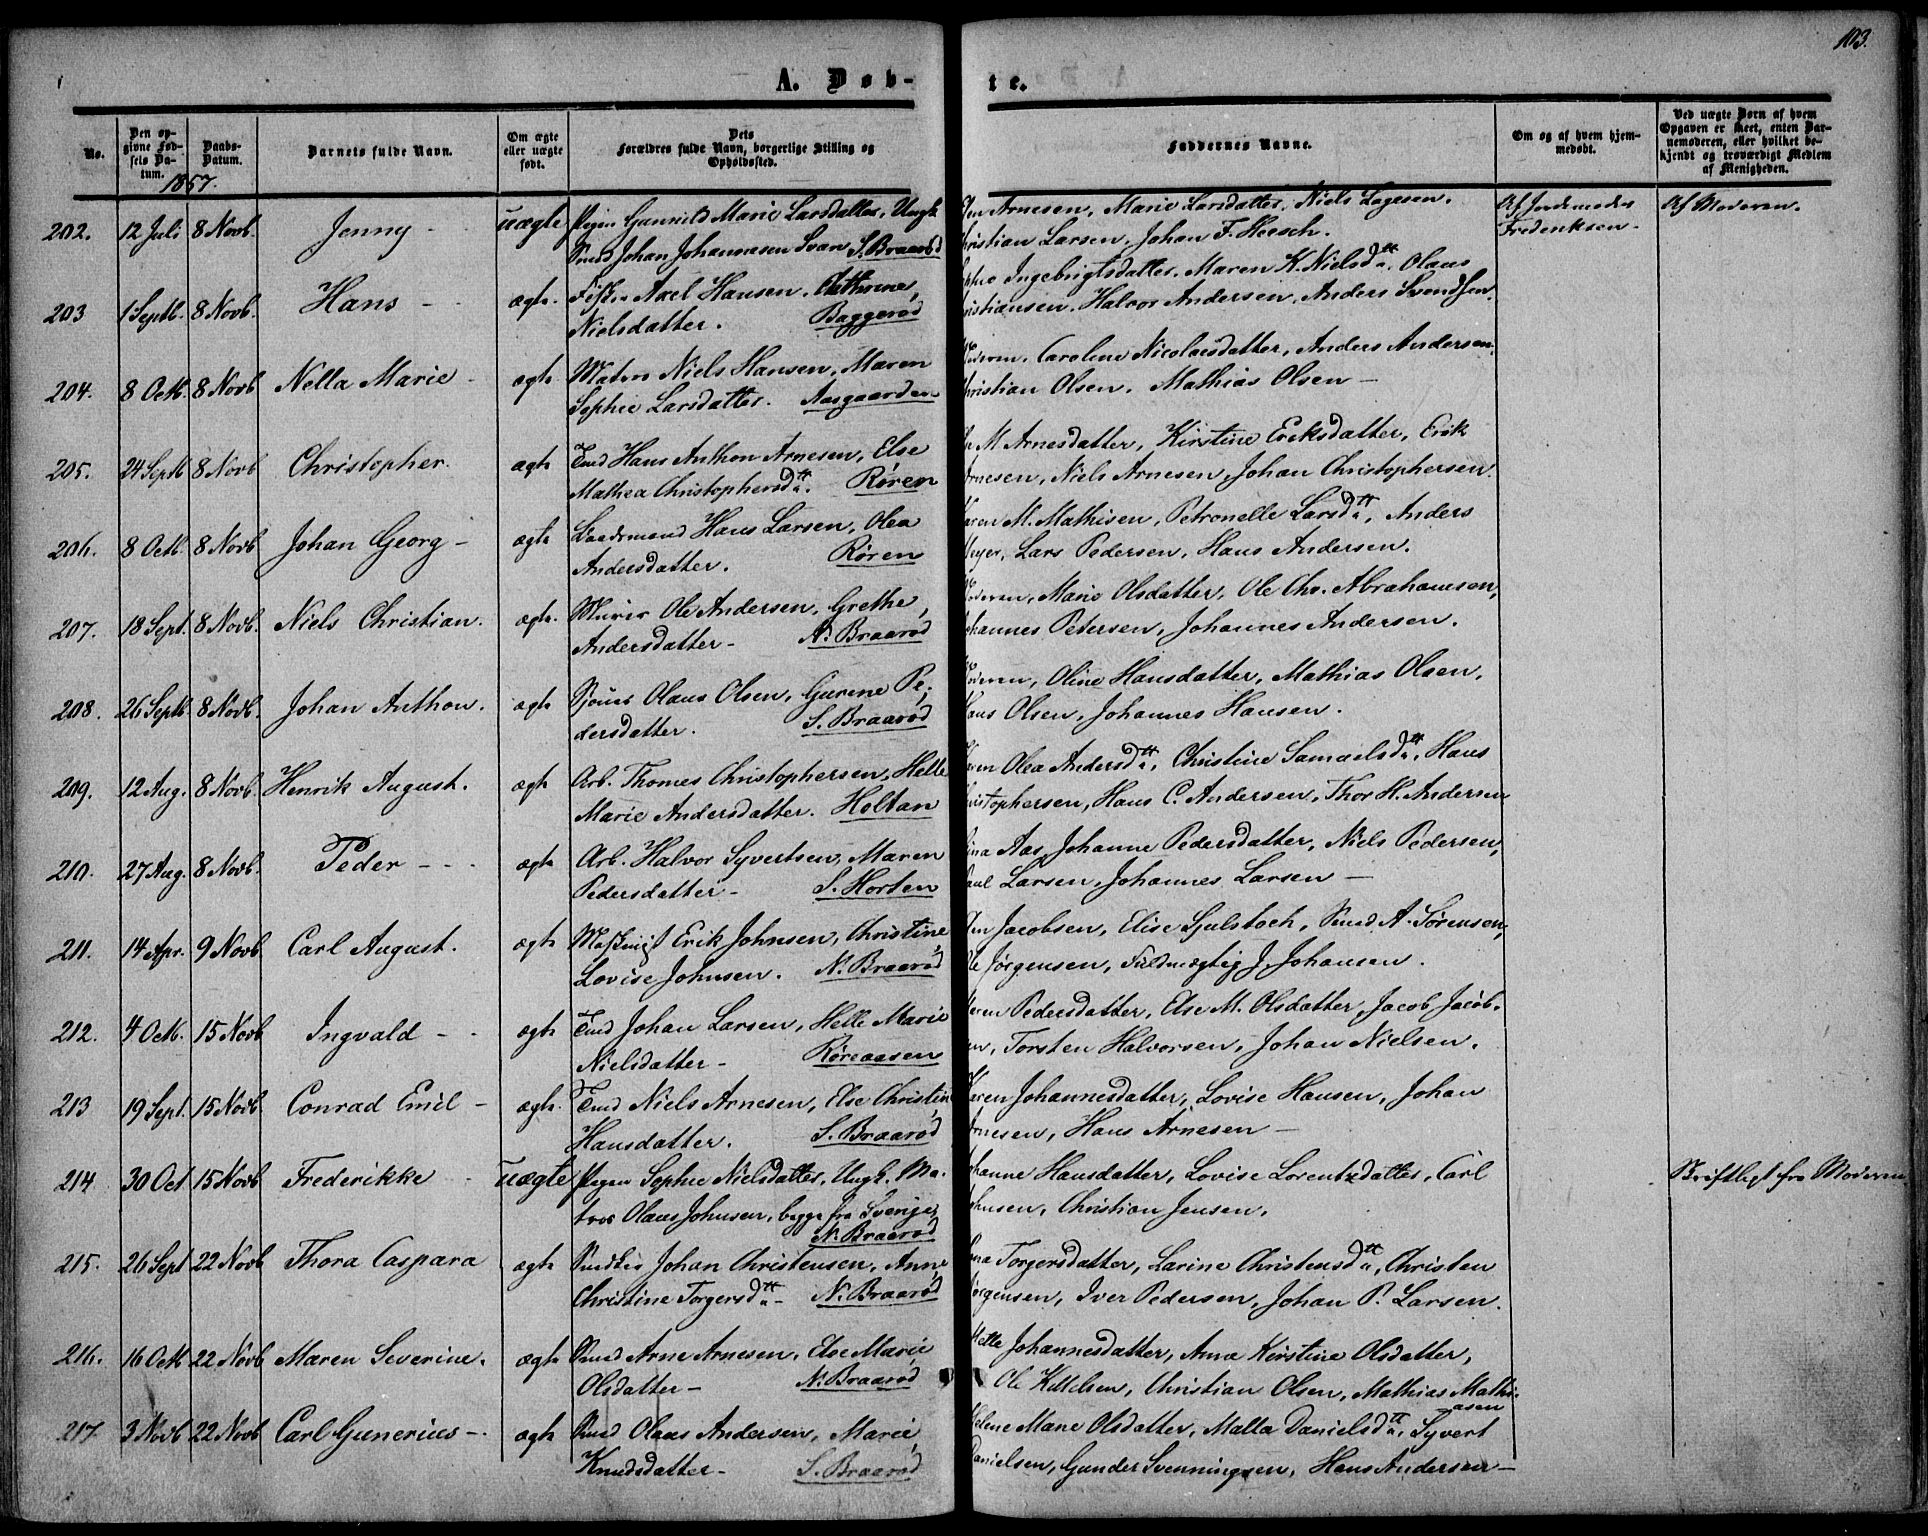 103.
A. Døb-
te.
No.
Den op-
givne Fød-
sels Da-
tum.
Daabs-
Datum.
Barnets fulde Navn.
Om ægte
eller uægte
født.
Dets
Forældres fulde Navn, borgerlige Stilling og
Opholdssted.
Faddernes Navne.
Om og af hvem hjem-
medøbt.
Ved uægte Børn af hvem
Opgaven er skeet, enten Bar-
nemoderen, eller hvilket be-
kjendt og troværdigt Medlem
af Menigheden.
1857.
202. 12 Juli 8 Novb. Jenny - uægte Pigen Gunnild Marie Larsdatter, Ungk. Arnesen, Marie Larsdatter, Niels Lagesen, Af Jordemoder Af Moderen.
Smed Johan Johannesen Svan S. Braarød Christian Larsen, Johan F. Heesch. Frederiksen.
203 1 Septb. 8 Novb. Hans - ægte. Fisker Axel Hansen, Cathrine Ingebrigtsdatter, Maren K. Nielsdtr, Olaus
Nielsdatter. Baggerød Christiansen, Halvor Andersen, Anders Svendsen.
204. 8 Octb. 8 Novb Nella Marie - ægte Matros Niels Hansen, Maren Moderen, Caroline Nicolaisdatter, Anders Andersen,
Sophie Larsdatter. Aasgaarden Christian Olsen, Mathias Olsen -
205. 24 Septb 8 Novb Christopher. ægte Tmd Hans Anthon Arnesen, Else M. Arnesdatter, Kirstine Eriksdatter, Erik
Mathea Christophersdtr. Røren Arnesen, Niels Arnesen, Johan Christophersen.
206. 8 Octb. 8 Novb Johan Georg - ægte Gaardmand Hans Larsen, Olea Karen M. Mathisen, Petronelle Larsdtr, Anders
Andersdatter. Røren Meyer, Lars Pedersen, Hans Andersen.
207. 18 Sept. 8 Novb. Niels Christian. ægte. Murer Ole Andersen, Grethe Moderen, Marie Olsdatter, Ole Chr. Abrahamsen,
Andersdatter - N. Braarød Johannes Petersen, Johannes Andersen.
208. 26 Septb. 8 Novb. Johan Anthon. ægte Olaus Olsen, Gurine Pe- Moderen, Oline Hansdatter, Mathias Olsen,
dersdatter. S. Braarød Hans Olsen, Johannes Hansen.
209. 12 Aug. 8 Novb. Henrik August. ægte Arb. Thomes Christophersen, Helle Maren Olea Andersdtr, Christine Samuelsdtr, Hans
Marie Andersdatter. Holtan Christophersen, Hans C. Andersen, Thor H. Andersen
210. 27 Aug. 8 Novb. Peder - - - ægte Arb. Halvor Syvertsen, Maren Aas, Johanne Pedersdatter, Niels Pedersen,
Pedersdatter - S. Horten Paul Larsen, Johannes Larsen -
211. 14 Apr. 9 Novb Carl August. ægte Maskinist Erik Johnsen, Christine Jacobsen, Elise Gulstoch, Smed A. Sørensen,
Lovise Johnsen. N. Braarød Ole Jørgensen, Fuldmægtig J. Johansen.
212. 4 Octb. 15 Novb Ingvald - - ægte Tmd Johan Larsen, Helle Marie Maren Pedersdatter, Else M. Olsdatter, Jacob Jacob-
Nielsdatter - Røreaasen sen, Torsten Halvorsen, Johan Nielsen.
213 19 Sept. 15 Novb Conrad Emil - ægte. Tmd Niels Arnesen, Else Christine Karen Johannesdatter, Lovise Hansen, Johan
Hansdatter. S. Braarød Arnesen, Hans Arnesen -
214 30 Oct 15 Novb Frederikke - uægte Pigen Sophie Nielsdatter, Ungk. Ma- Johanne Hansdatter, Lovise Lorentzdatter, Carl Skriftligt fra Moderen.
tros Olaus Johnsen, begge fra Sverige, Johnsen, Christian Jensen.
N. Braarød
215. 26 Sept 22 Novb Thora Caspara ægte Snedker Johan Christensen, Anne Torgersdatter, Larine Christensdtr, Christen
Christine Torgersdtr - N. Braarød Jørgensen, Iver Pedersen, Johan P. Larsen.
216. 16 Octb 22 Novb Maren Severine. ægte Smed Arne Arnesen, Else Marie Helle Johannesdatter, Anne Kirstine Olsdatter,
Olsdatter - N. Braarød Ole Kittelsen, Christian Olsen, Mathias Mathi-
asen
217. 3 Novb 22 Novb Carl Gunerius - ægte Smed Olaus Andersen, Marie Helene Marie Olsdatter, Malla Danielsdtr, Syvert
Knudsdatter - S. Braarød Danielsen, Gunder Svenningsen, Hans Andersen -